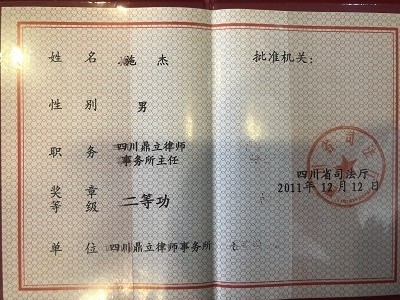 姓 名 施 杰
性 别 男
职 务 四川鼎立律师
事务所主任
奖 章
等 级 二等功
单 位 四川鼎立律师事务所
批准机关:
四川省司法厅
2011年 12月 12日